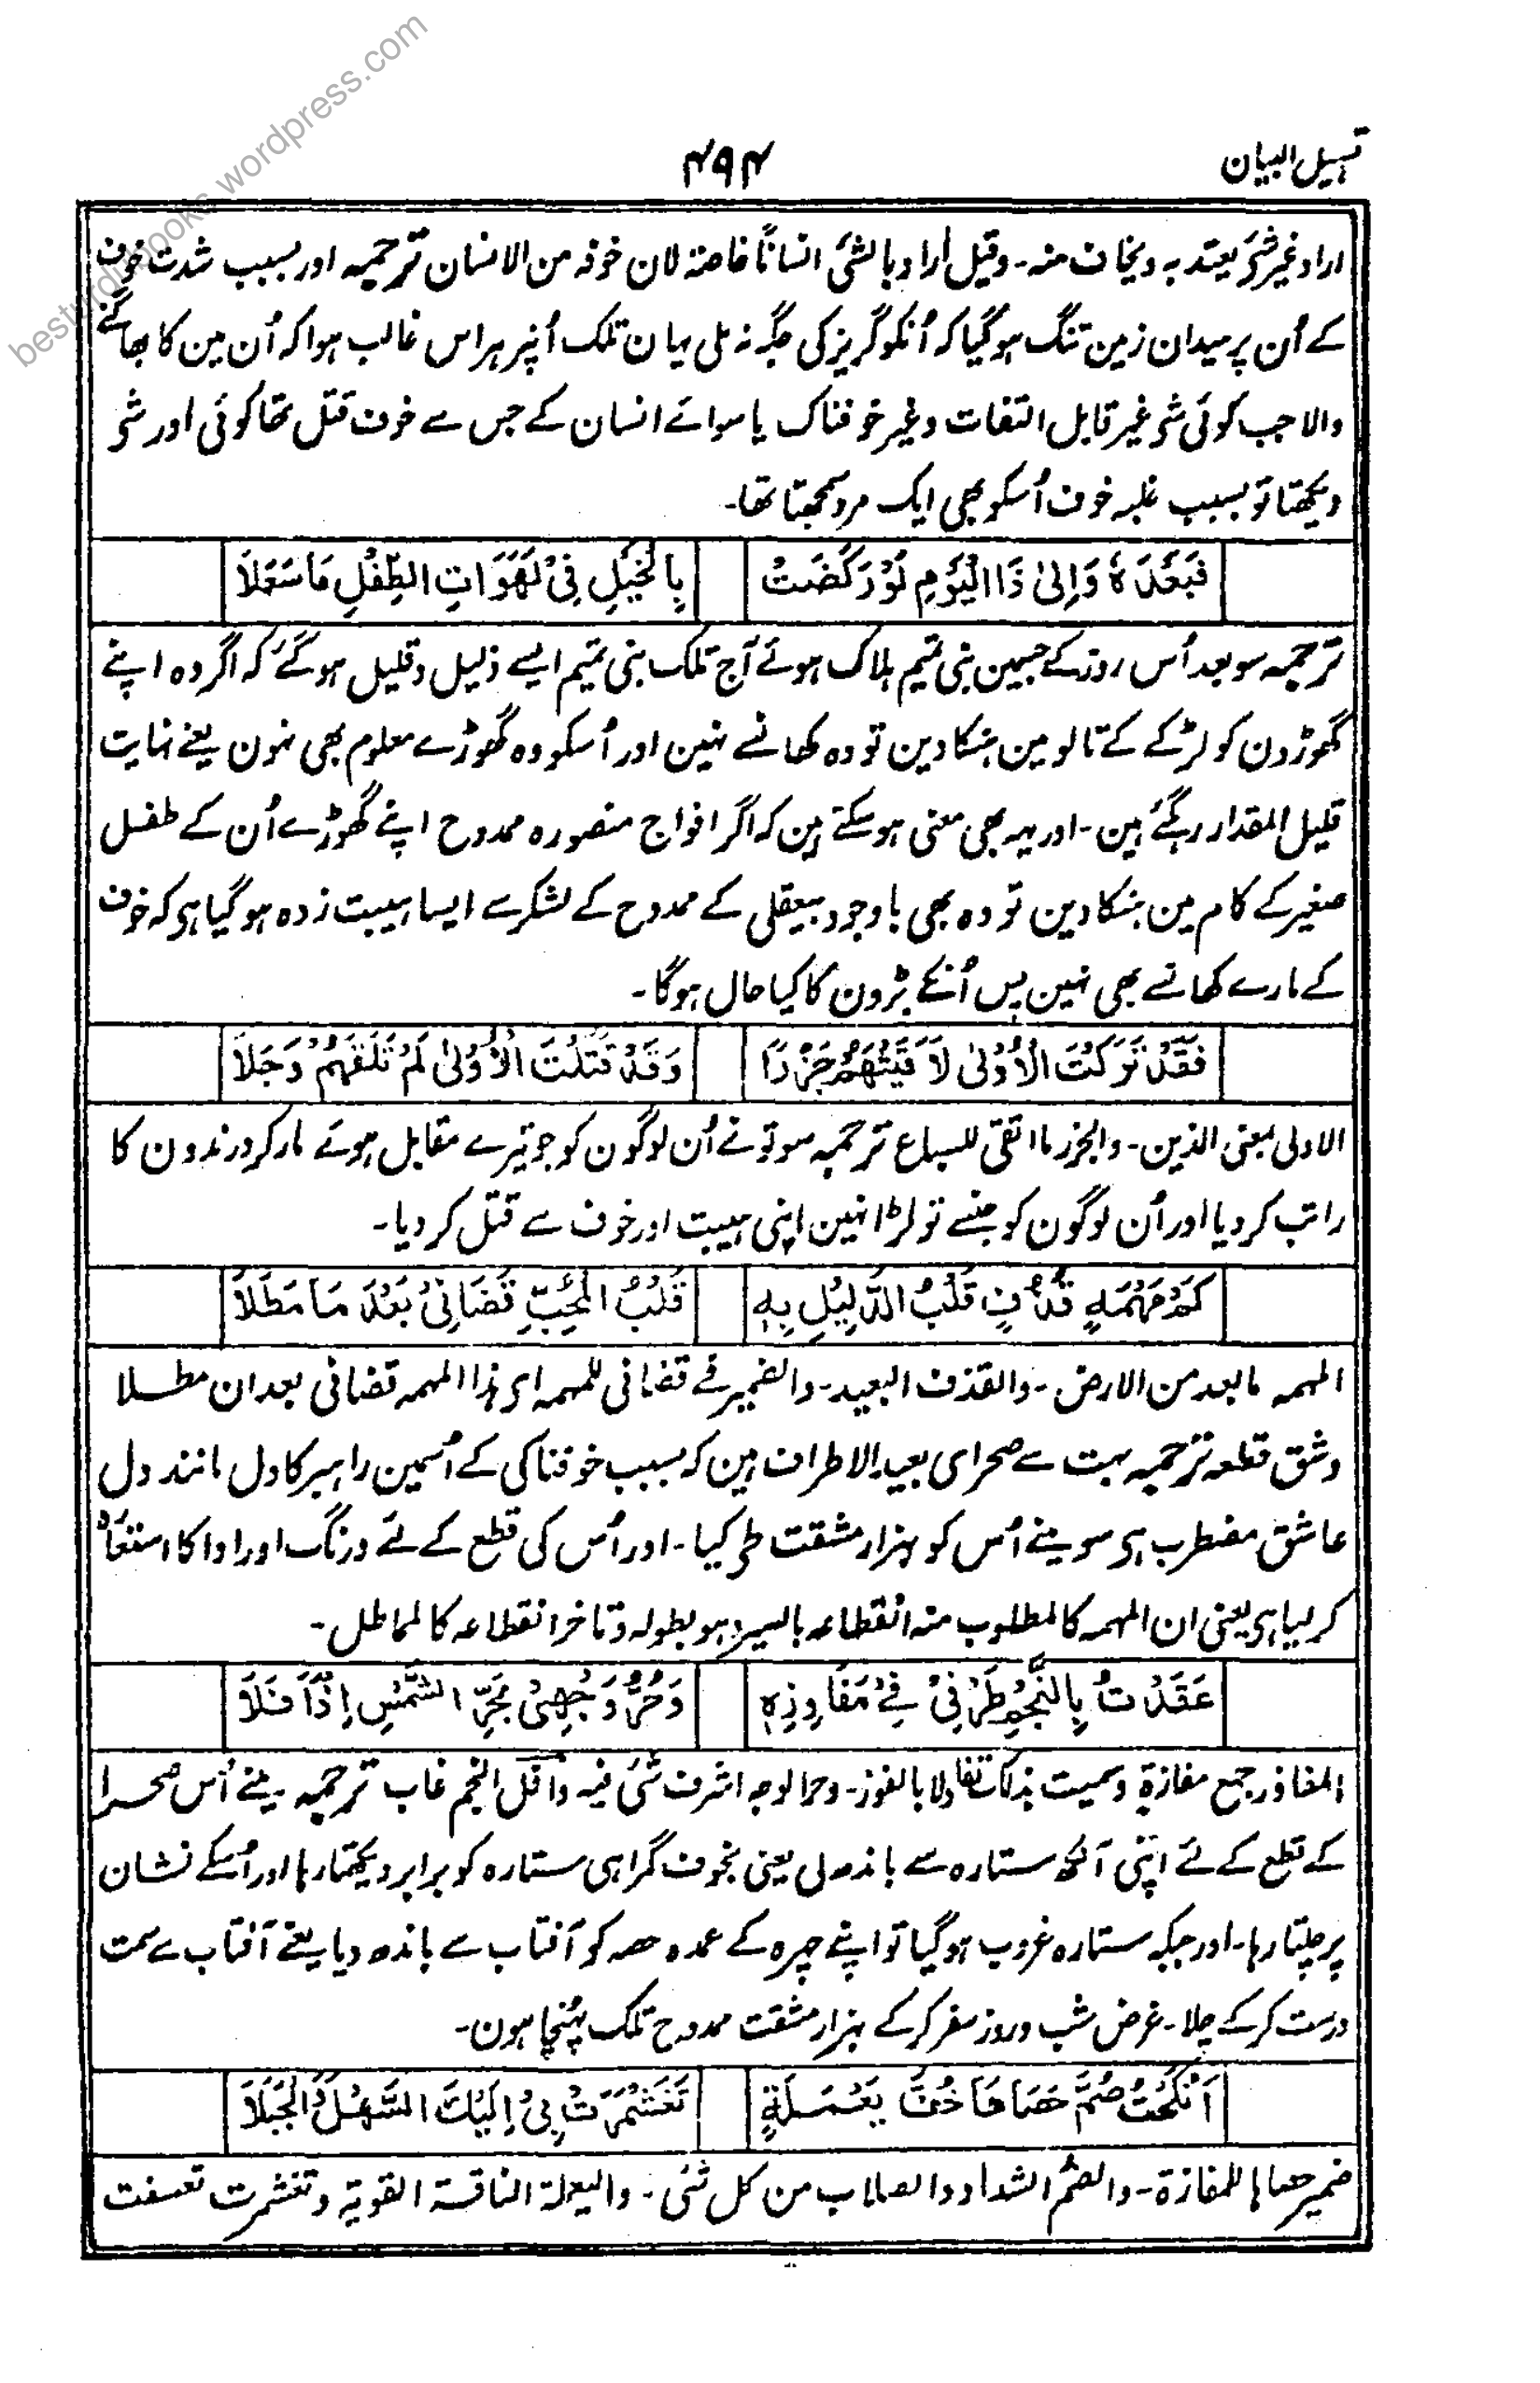 besturdubooks.wordpress.com
تسہیل البیان
۴۹۴
اراد غیر شئ یعتد بہ ویخاف منہ۔ وقیل اراد بالشئ انسانًا خاصۃ لان خوفہ من الانسان ترجمہ اور بسبب شدت خوف
کے اُن پر میدان زمین تنگ ہوگیا کہ اُنکو گریز کی جگہ نہ ملی یہان تلک اُنپر ہراس غالب ہوا کہ اُن مین کا بھاگنے
والا جب کوئی شی غیر قابل التفات وغیر خوفناک یا سوائے انسان کے جس سے خوف قتل تھا کوئی اور شی
دیکھتا تو بسبب غلبہ خوف اُسکو بھی ایک مرد سمجھتا تھا۔
فَبَعْدَہٗ وَاِلیٰ ذَا الْیَوْمِ لَوْ رَکَضَتْ بِالْخَیْلِ فِیْ لَهَوَاتِ الطِّفْلِ مَا سَعَلَا
ترجمہ سو بعد اُس روز کے جسمین بنی تمیم ہلاک ہوئے آج تلک بنی تمیم ایسے ذلیل وقلیل ہوگئے کہ اگر وہ اپنے
گھوڑون کو لڑکے کے تالو مین ہنکا دین تو وہ کھانسے نہین اور اُسکو وہ گھوڑے معلوم بھی نہون یعنے نہایت
قلیل المقدار رہگئے ہین۔ اور یہہ بھی معنی ہوسکتے ہین کہ اگر افواج منصورہ ممدوح اپنے گھوڑے اُن کے طفل
صغیر کے کام مین ہنکا دین تو وہ بھی باوجود بیعقلی کے ممدوح کے لشکر سے ایسا ہیبت زدہ ہوگیا ہی کہ خوف
کے مارے کھانسے بھی نہین پس اُنکے بڑون کا کیا حال ہوگا۔
فَقَدْ تَرَکْتَ الْاُوْلیٰ لَاقَیْتَهُمْ جَزَرًا وَقَدْ قَتَلْتَ الْاُوْلیٰ لَمْ تَلْقَهُمْ وَجَلَا
الاولی بمعنی الذین۔ والجزر ما اتقی للسباع ترجمہ سو تونے اُن لوگون کو جو تیرے مقابل ہوئے مار کر درندون کا
راتب کر دیا اور اُن لوگون کو جنسے تو لڑا نہین اپنی ہیبت اور خوف سے قتل کر دیا۔
کَمْ مَهْمَهٍ قَذَفٍ قَلْبُ الدَّلِیْلِ بِهٖ قَلْبُ الْمُحِبِّ قَضَانِیْ بَعْدَ مَا مَطَلَا
المہمہ ما بعد من الارض۔ والقذف البعید۔ والضمیر فے قضانی للمہمہ ای ہذا المہمہ قضانی بعد ان مطلا
وشق قطعہ ترجمہ بہت سے صحرای بعید الاطراف ہین کہ بسبب خوفناکی کے اُسمین راہبر کا دل مانند دل
عاشق مضطرب ہی سو مینے اُس کو بہزار مشقت طی کیا۔ اور اُس کی قطع کے لئے درنگ اور ادا کا استعارہ
کر لیا ہی یعنی ان المہمہ کالمطلوب منہ انقطاعہ بالسیر وہو بطولہ وتاخر انقطاعہ کالمماطل۔
عَقَدْتُ بِالنَّجْمِ طَرْفِیْ فِیْ مَفَاوِزِهٖ وَحُرَّ وَجْهِیْ بِحَرِّ الشَّمْسِ اِذْ اَفَلَا
المفاوز جمع مفازۃ وسمیت بذلک تفاولا بالفوز۔ وحر الوجہ اشرف شئ فیہ وافل النجم غاب ترجمہ۔ مینے اُس صحرا
کے قطع کے لئے اپنی آنکھ ستارہ سے باندھ لی یعنی بخوف گمراہی ستارہ کو برابر دیکھتا رہا اور اُسکے نشان
پر چلتا رہا۔ اور جبکہ ستارہ غروب ہوگیا تو اپنے چہرہ کے عمدہ حصہ کو آفتاب سے باندھ دیا یعنے آفتاب سے سمت
درست کر کے چلا۔ غرض شب وروز سفر کر کے بہزار مشقت ممدوح تلک پہنچا ہون۔
اَنْکَحْتُ صُمَّ حَصَاهَا خُفَّ یَعْمَلَةٍ تَغَشْمَرَتْ بِیْ اِلَیْكَ السَّهْلَ وَالْجَبَلَا
ضمیر حصاہا للمفازۃ۔ والصُم الشداد والصلاب من کل شئ۔ والیعملۃ الناقۃ القویۃ وتغشمرت تعسفت